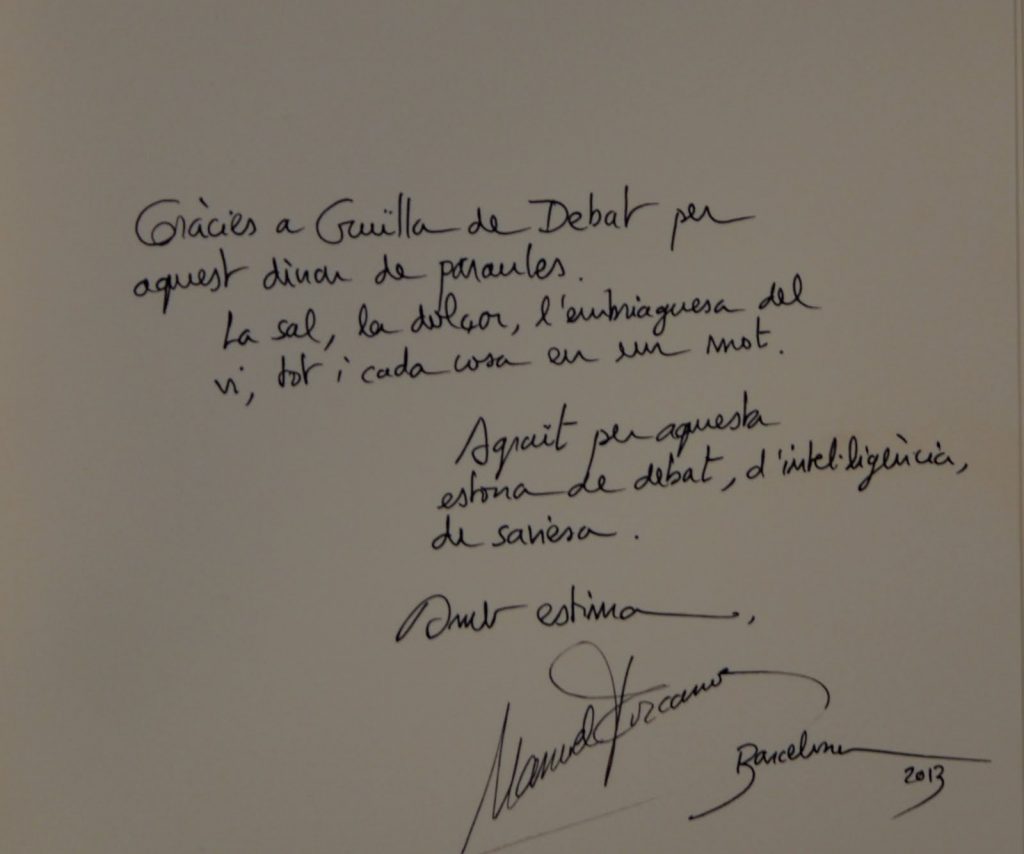 Gràcies a Guïlla de Debat per
aquest dinar de paraules.
La sal, la dolçor, l'embriaguesa del
vi, tot i cada cosa en un mot.
Agraït per aquesta
estona de debat, d'intel·ligència,
de saviesa.
Amb estima,
Manuel Forcano
Barcelona
2013